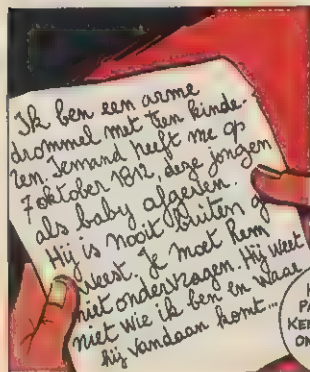 Ik ben een arme
drommel met tien kinde-
ren. Iemand heeft me op
7 oktober 1812, deze jongen
als baby afgegeven.
Hij is nooit buiten ge
weest. Je moet hem
niet ondervragen. Hij weet
niet wie ik ben en waar
hij vandaan komt...